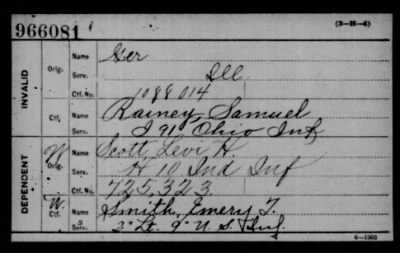 966081
(3-H-4)
INVALID
Orig.
Name Ger
Serv. Ill.
Ctf. No. 1088014
Ctf.
Name Rainey, Samuel
Serv. I 91 Ohio Inf
DEPENDENT
W Orig.
Name Scott, Levi H.
Serv. H 10 Ind Inf
Ctf. No. 725,323
W. Ctf.
Name Smith, Emery T.
Serv. 2" Lt. 9" U.S. Inf.
6-1903